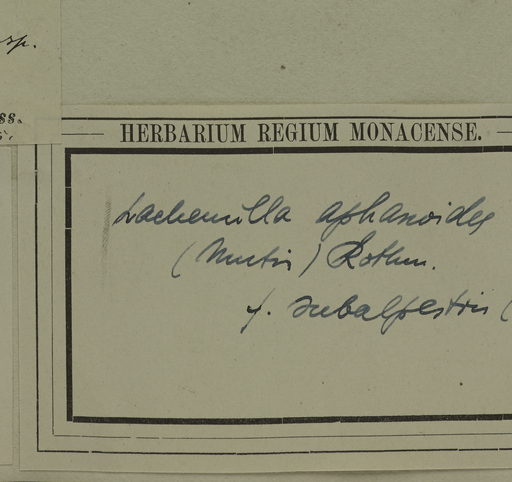 sp.
ss.
HERBARIUM REGIUM MONACENSE.
Lachemilla aphanoides
(Mutis) Rothm.
f. subalpestris (